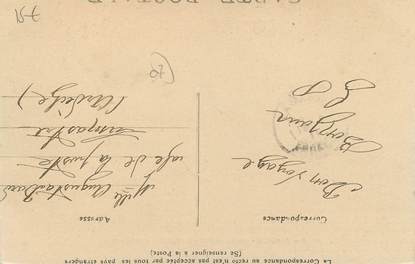 CARTE POSTALE
La Correspondance au recto n'est pas acceptée par tous les pays étrangers
(Se renseigner à la Poste).
Correspondance
Adresse
Bon Voyage
Bonjour
Mlle Augusta
café de la poste
Lamastre
(Ardèche)